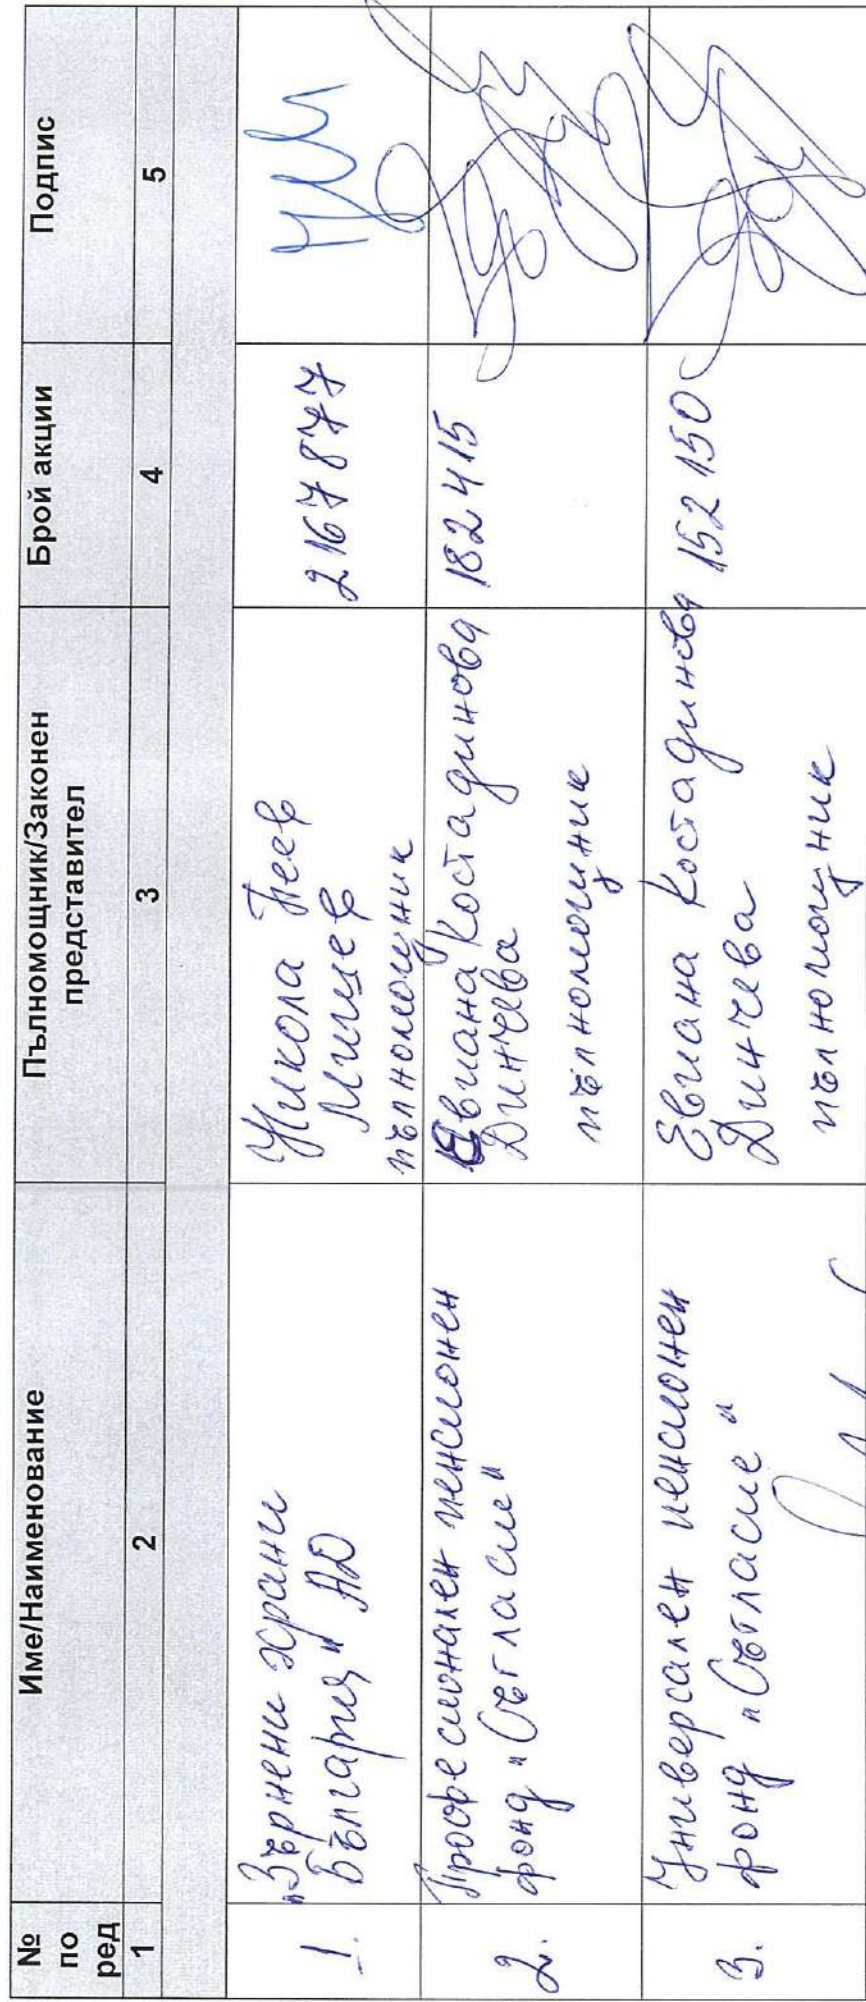 № по ред Име/Наименование Пълномощник/Законен представител Брой акции Подпис
1 2 3 4 5
1. „Зърнени храни България" АД Никола Пеев Мишев пълномощник 2167877
2. Професионален пенсионен фонд „Съгласие" Евиана Костадинова Динчева пълномощник 182415
3. Универсален пенсионен фонд „Съгласие" Евиана Костадинова Динчева пълномощник 152150